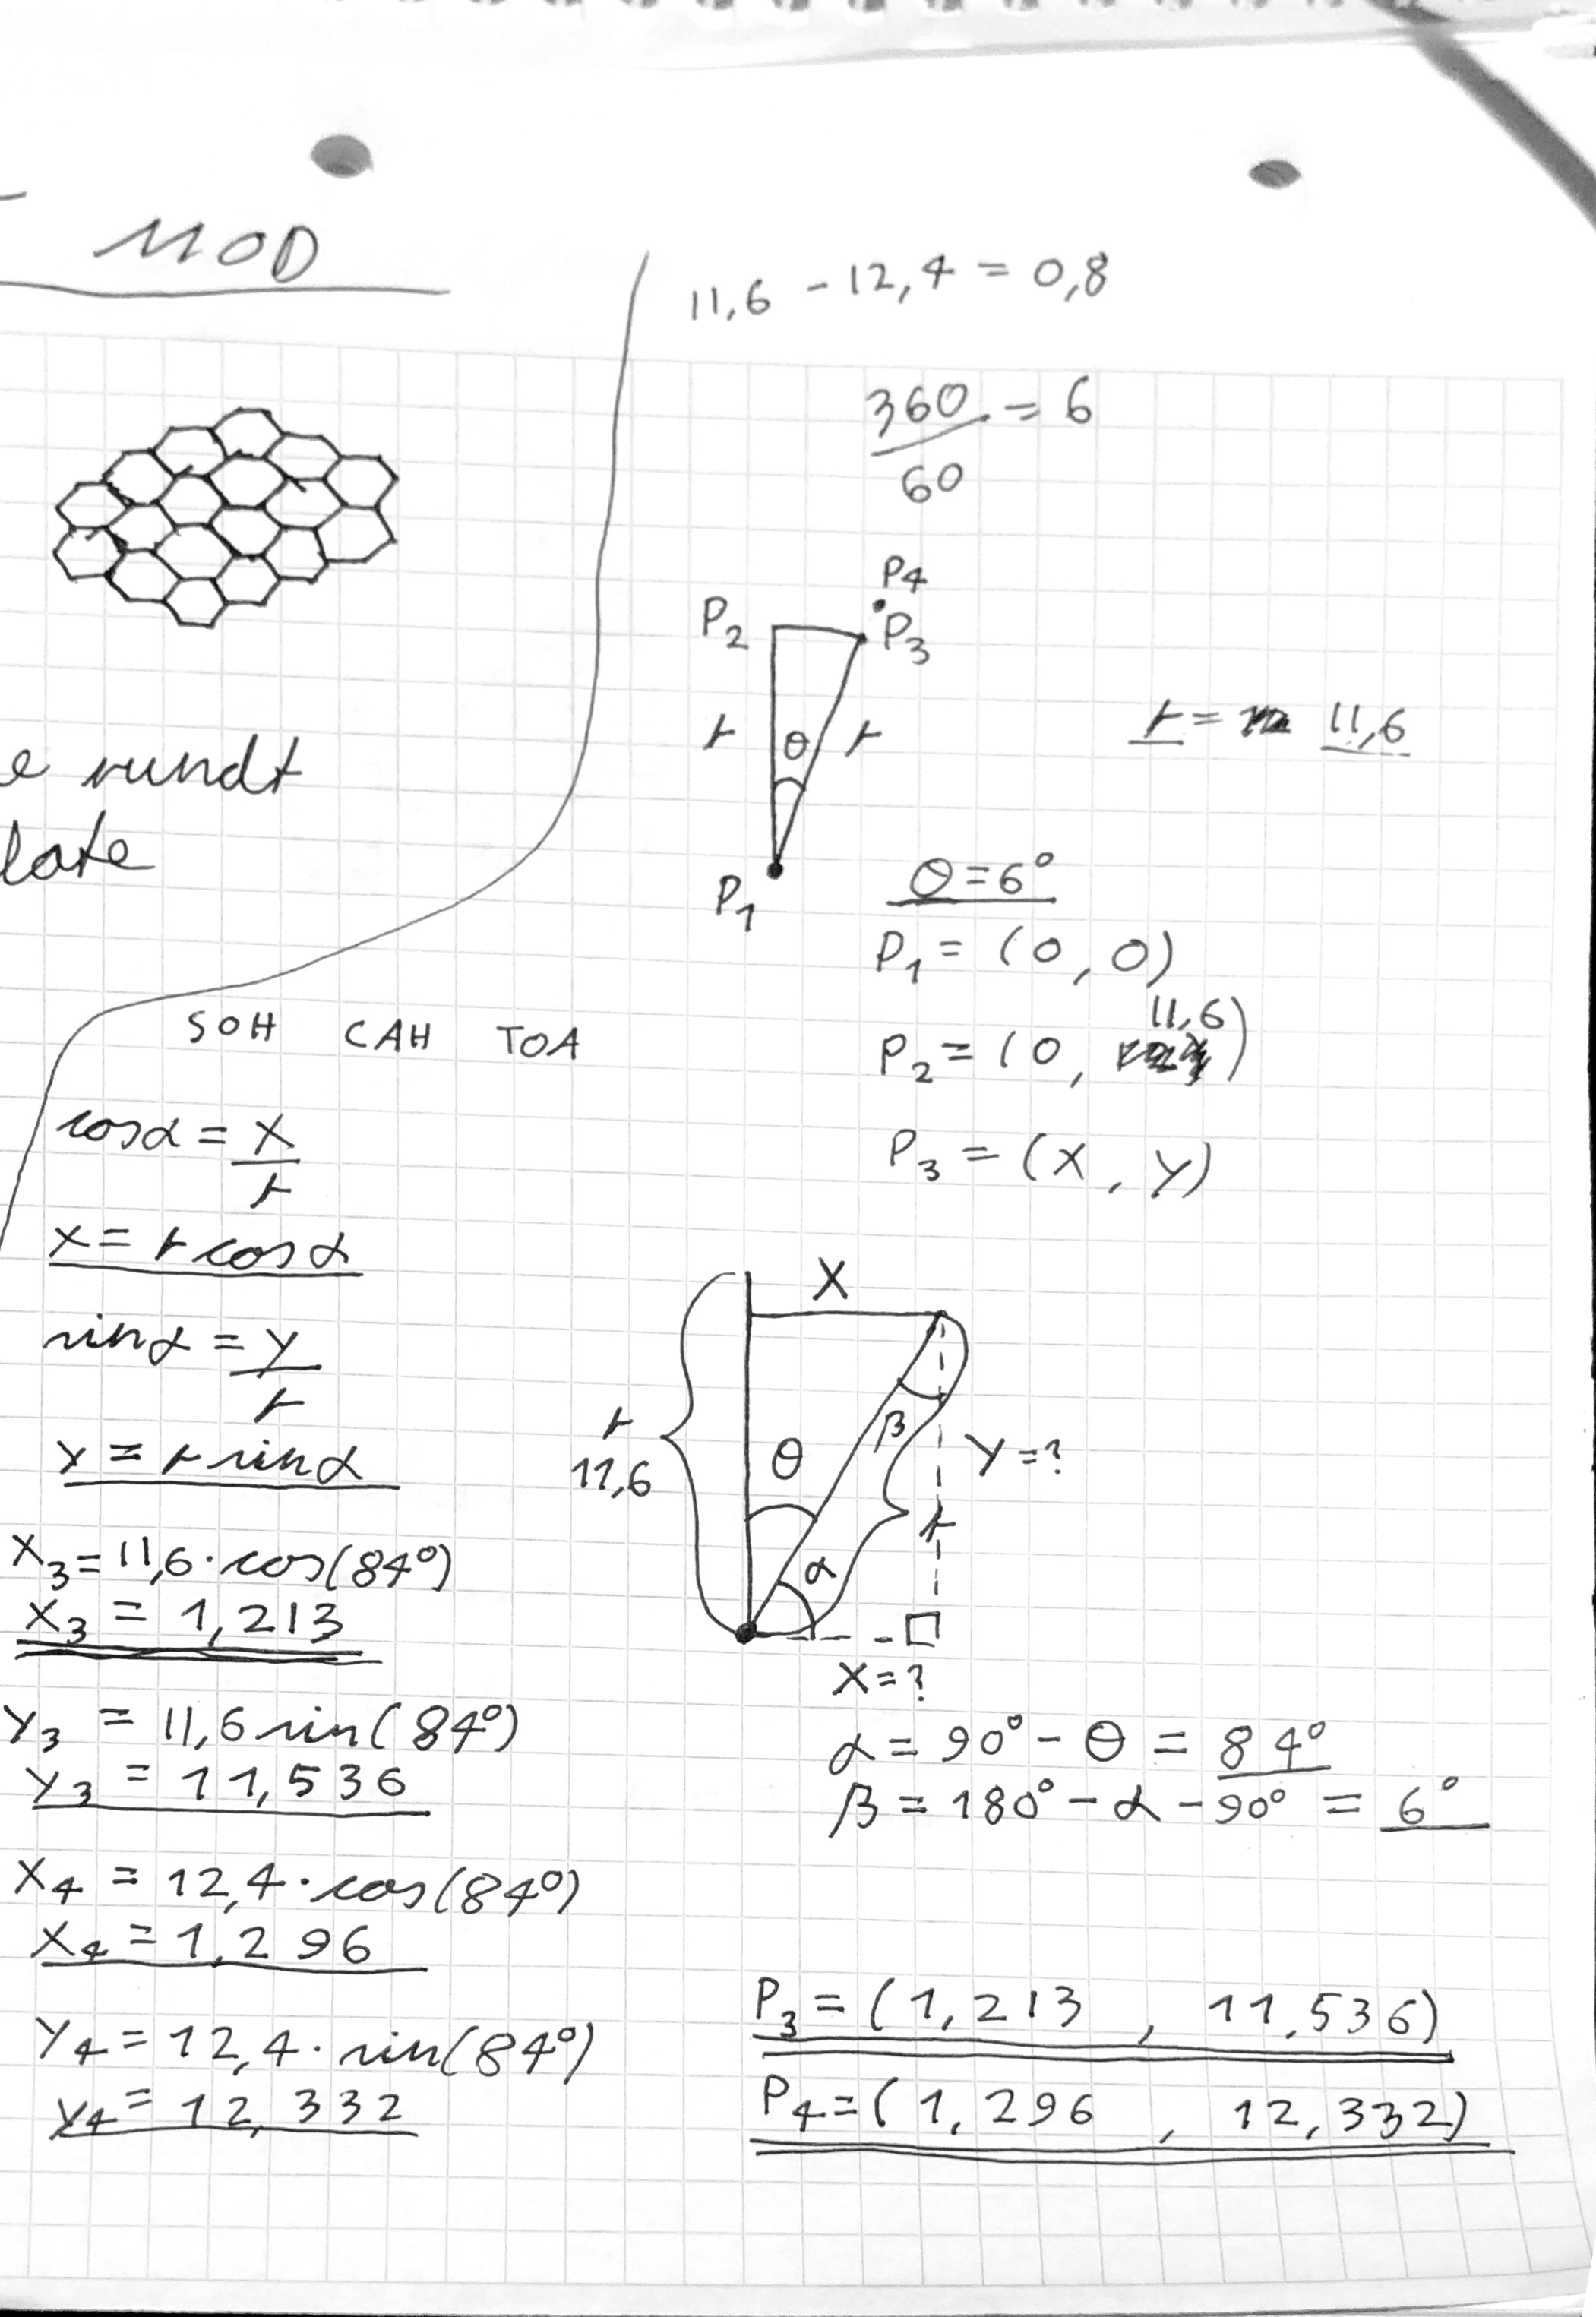 MOD
11,6 - 12,4 = 0,8
360/60 = 6
P4
P2
P3
r
θ
r
r = 11,6
P1
θ = 6°
P1 = (0, 0)
P2 = (0, 11,6)
P3 = (x, y)
e rundt
late
SOH CAH TOA
cosα = x/r
x = r cosα
sinα = y/r
y = r sinα
x3 = 11,6 · cos(84°)
x3 = 1,213
y3 = 11,6 sin(84°)
y3 = 11,536
x4 = 12,4 · cos(84°)
x4 = 1,296
y4 = 12,4 · sin(84°)
y4 = 12,332
X
r
11,6
θ
β
y = ?
r
α
x = ?
α = 90° - θ = 84°
β = 180° - α - 90° = 6°
P3 = (1,213 , 11,536)
P4 = (1,296 , 12,332)